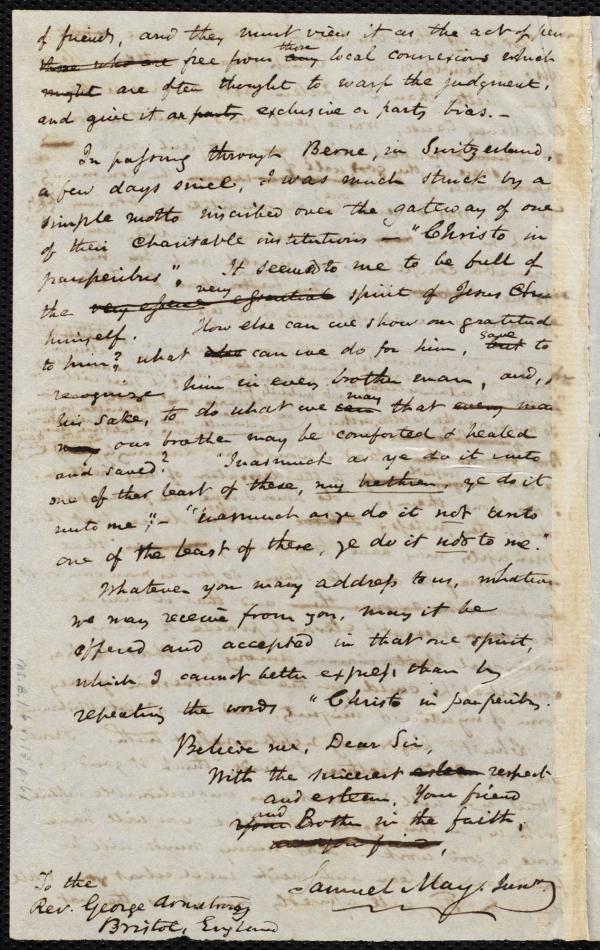 of friends, and they must view it as the act of
those who are free from those any local connexions which
might are often thought to warp the judgment,
and give it a party exclusive or party bias. –
In passing through Berne, in Switzerland,
a few days since, I was much struck by a
simple motto inscribed over the gateway of one
of their charitable institutions – "Christo in
pauperibus". It seemed to me to be full of
the very essence very essential spirit of Jesus
himself. How else can we show our gratitude
to him? what else can we do for him, save but to
recognize him in every brother man, and,
his sake, to do what we can may that every
may our brother may be comforted & healed
and saved? "Inasmuch as ye do it unto
one of the least of these, my brethren, ye do it
unto me"; – "Inasmuch as ye do it not unto
one of the least of these, ye do it not to me."
Whatever you may address to us, whatever
we may receive from you, may it be
offered and accepted in that one spirit,
which I cannot better express than by
repeating the words "Christo in pauperibus.
Believe me, Dear Sir,
With the sincerest esteem respect
and esteem, Your friend
Your and Brother in the faith,
Samuel May, Junr.
To the
Rev. George Armstrong
Bristol, England